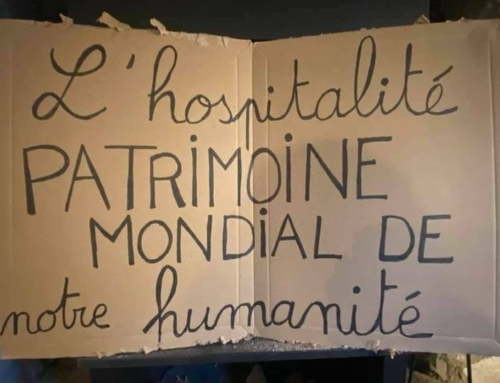 L'hospitalité
PATRiMOiNE
MONDiAL DE
notre humanité